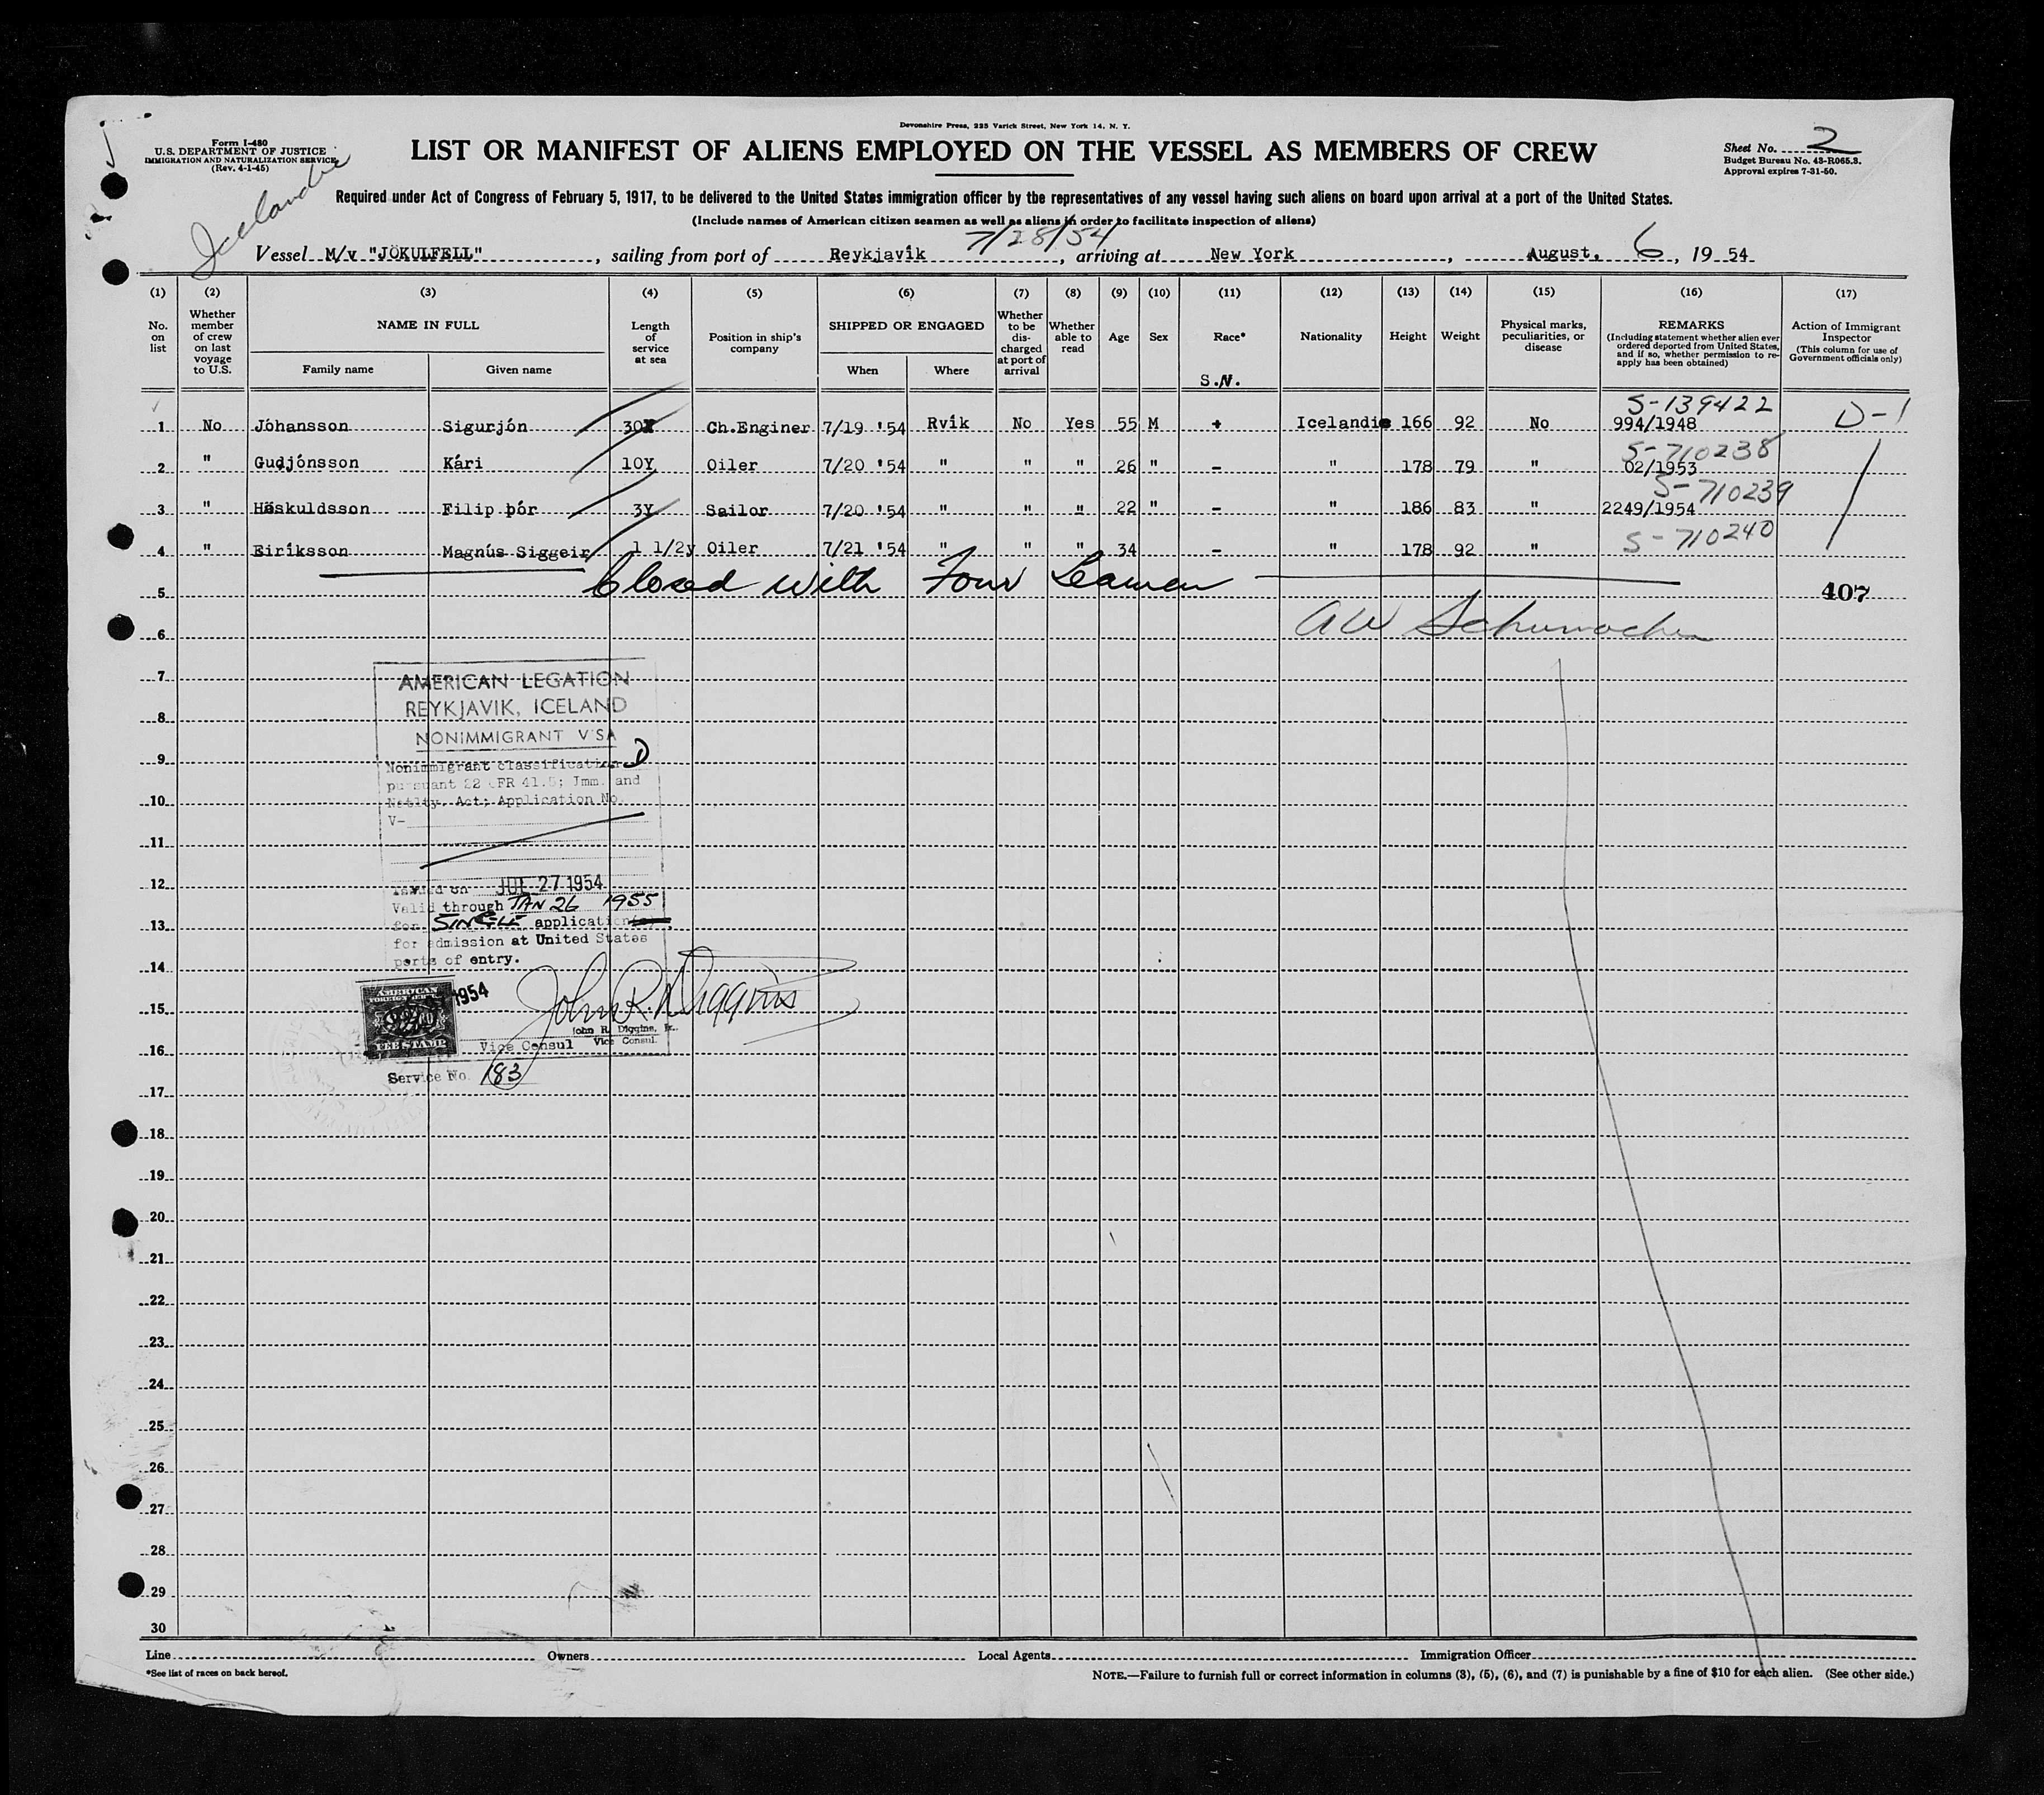 Devonshire Press, 225 Varick Street, New York 14, N. Y.
Form I-480
U.S. DEPARTMENT OF JUSTICE
IMMIGRATION AND NATURALIZATION SERVICE
(Rev. 4-1-45)
LIST OR MANIFEST OF ALIENS EMPLOYED ON THE VESSEL AS MEMBERS OF CREW
Sheet No. 2
Budget Bureau No. 43-R065.3.
Approval expires 7-31-50.
Required under Act of Congress of February 5, 1917, to be delivered to the United States immigration officer by the representatives of any vessel having such aliens on board upon arrival at a port of the United States.
(Include names of American citizen seamen as well as aliens in order to facilitate inspection of aliens)
Icelandic
7/28/54
Vessel M/v "JÖKULFELL", sailing from port of Reykjavík, arriving at New York, August, 6, 19 54
(1) (2) (3) (4) (5) (6) (7) (8) (9) (10) (11) (12) (13) (14) (15) (16) (17)
No. on list
Whether member of crew on last voyage to U.S.
NAME IN FULL
Family name
Given name
Length of service at sea
Position in ship's company
SHIPPED OR ENGAGED
When
Where
Whether to be discharged at port of arrival
Whether able to read
Age
Sex
Race*
S.N.
Nationality
Height
Weight
Physical marks, peculiarities, or disease
REMARKS
(Including statement whether alien ever ordered deported from United States, and if so, whether permission to reapply has been obtained)
Action of Immigrant Inspector
(This column for use of Government officials only)
S-139422
1 No Jóhansson Sigurjón 30Y Ch.Enginer 7/19 '54 Rvík No Yes 55 M + Icelandic 166 92 No 994/1948 D-1
S-710238
2 " Gudjónsson Kári 10Y Oiler 7/20 '54 " " " 26 " - " 178 79 " 02/1953
S-710239
3 " Höskuldsson Filip þór 3Y Sailor 7/20 '54 " " " 22 " - " 186 83 " 2249/1954
S-710240
4 " Eiríksson Magnús Siggeir 1 1/2y Oiler 7/21 '54 " " " 34 - " 178 92 "
Closed with Four Seamen
5 407
AW Schumacher
6
7
AMERICAN LEGATION
REYKJAVIK, ICELAND
8
NONIMMIGRANT VISA
9
Nonimmigrant classification D
pursuant 22 CFR 41.5; Imm. and
10
Natlty. Act; Application No.
V-
11
12
Issued on JUL 27 1954
Valid through JAN 26 1955
13
for SINGLE application
for admission at United States
ports of entry.
14
John R. Diggins
AMERICAN
FOREIGN SERVICE
1954
15
FEE STAMP
John R. Diggins, Jr.
Vice Consul
Vice Consul.
16
Service No. 183
17
18
19
20
21
22
23
24
25
26
27
28
29
30
Line Owners Local Agents Immigration Officer
*See list of races on back hereof.
NOTE.—Failure to furnish full or correct information in columns (3), (5), (6), and (7) is punishable by a fine of $10 for each alien. (See other side.)